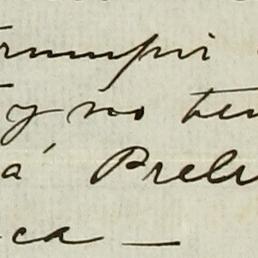 rrumpir
y no ten
á Prelu
ca —